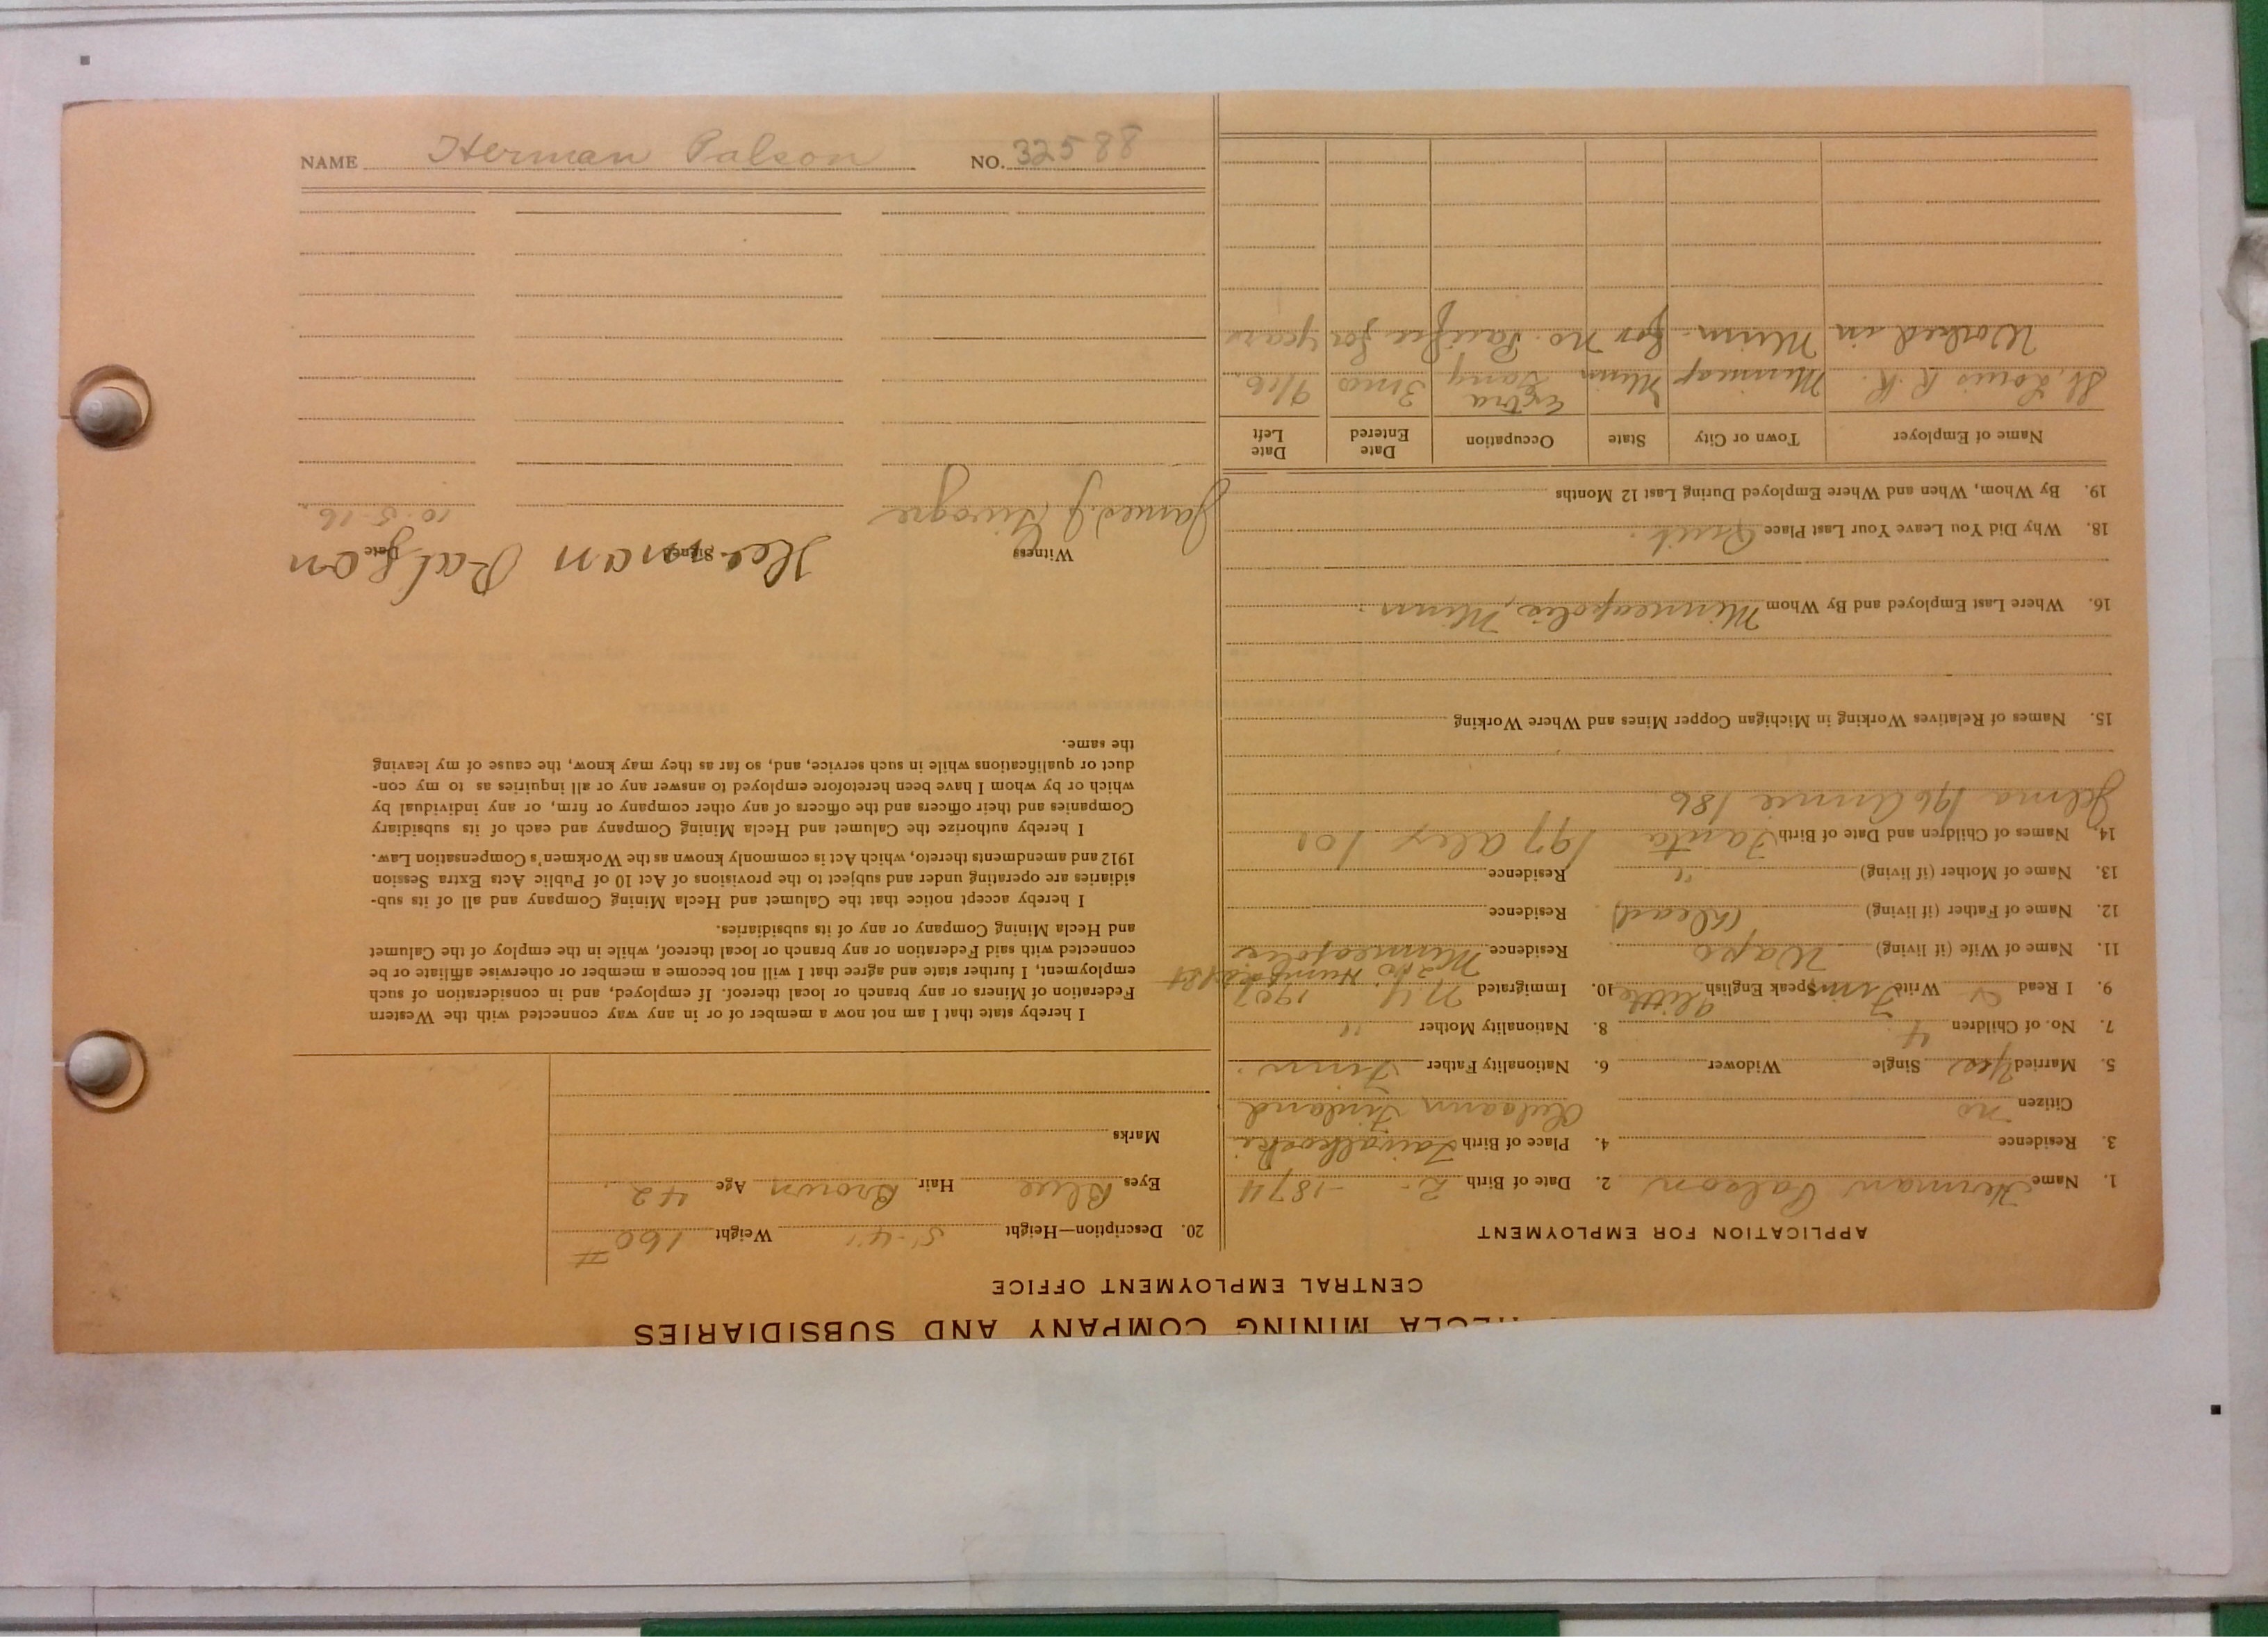 NAME Herman Palson NO. 32588
HECLA MINING COMPANY AND SUBSIDIARIES
CENTRAL EMPLOYMENT OFFICE
APPLICATION FOR EMPLOYMENT
1. Name Herman Palson 2. Date of Birth 2 - -1874
3. Residence 4. Place of Birth
Citizen no Finland
5. Married Yes Single Widower 6. Nationality Father Finn.
7. No. of Children 4 8. Nationality Mother "
9. I Read & Write Finn Speak English little 10. Immigrated N Y 1907
11. Name of Wife (if living) Residence Minneapolis
12. Name of Father (if living) (dead) Residence
13. Name of Mother (if living) " Residence
14. Names of Children and Date of Birth 197 alex 101
196 Annie 186
15. Names of Relatives Working in Michigan Copper Mines and Where Working
16. Where Last Employed and By Whom Minneapolis, Minn.
18. Why Did You Leave Your Last Place Quit.
19. By Whom, When and Where Employed During Last 12 Months
Name of Employer Town or City State Occupation Date Entered Date Left
St. Louis R. R. Minneap Minn Extra Gang 3 mos 9/16.
Worked in Minn. for No. Pacific for years
20. Description—Height 5'-4" Weight 160 #
Eyes Blue Hair Brown Age 42.
Marks
I hereby state that I am not now a member of or in any way connected with the Western
Federation of Miners or any branch or local thereof. If employed, and in consideration of such
employment, I further state and agree that I will not become a member or otherwise affiliate or be
connected with said Federation or any branch or local thereof, while in the employ of the Calumet
and Hecla Mining Company or any of its subsidiaries.
I hereby accept notice that the Calumet and Hecla Mining Company and all of its sub-
sidiaries are operating under and subject to the provisions of Act 10 of Public Acts Extra Session
1912 and amendments thereto, which Act is commonly known as the Workmen's Compensation Law.
I hereby authorize the Calumet and Hecla Mining Company and each of its subsidiary
Companies and their officers and the officers of any other company or firm, or any individual by
which or by whom I have been heretofore employed to answer any or all inquiries as to my con-
duct or qualifications while in such service, and, so far as they may know, the cause of my leaving
the same.
Witness Signed Herman Palson Date
James J. 10-5-16.